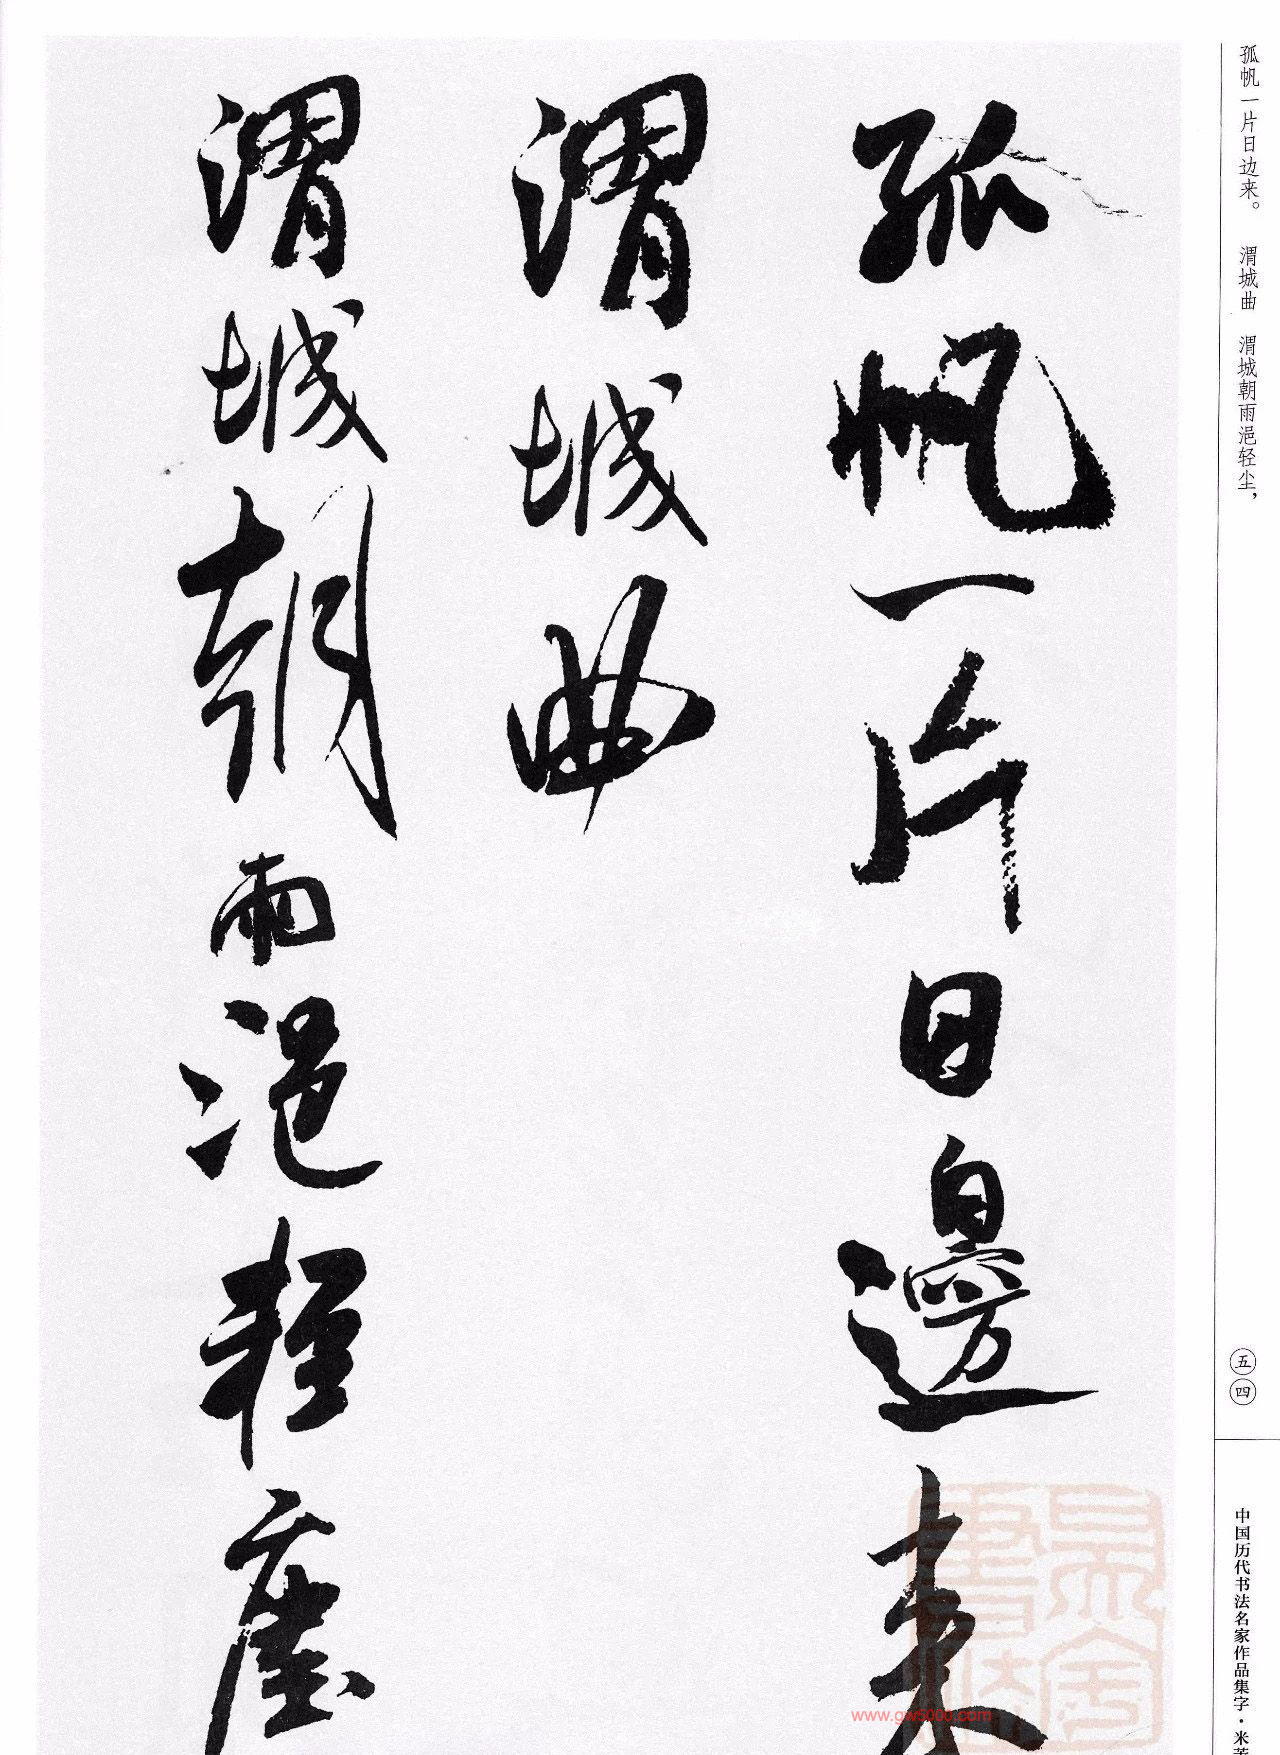 孤帆一片日邊来
渭城曲
渭城朝雨浥輕塵
孤帆一片日边来。　渭城曲　渭城朝雨浥轻尘，
五四
中国历代书法名家作品集字·米芾
www.gw5000.com